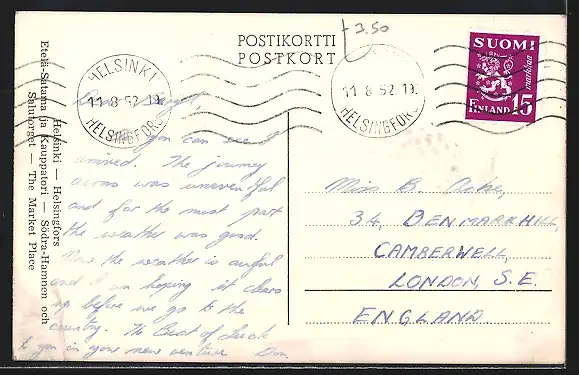 3.50
POSTIKORTTI
POSTKORT
HELSINKI
11.8.52.19.
HELSINGFORS
11.8.52.19.
HELSINGFORS
SUOMI
markkaa
FINLAND 15
Helsinki — Helsingfors
Etelä-Satama ja Kauppatori — Södra-Hamnen och
Salutorget — The Market Place
you can see I
arrived. The journey
across was uneventful
and for the most part
the weather was good.
Now the weather is awful
and I am hoping it clears
up before we go to the
country. The Best of Luck
to you in your new venture
Miss B.
34, DENMARK HILL,
CAMBERWELL,
LONDON, S.E.
ENGLAND.